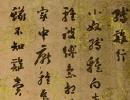 縛雞行
小奴縛雞向市
雞被縛急相
家中厭雞食
蟻不知雞賣